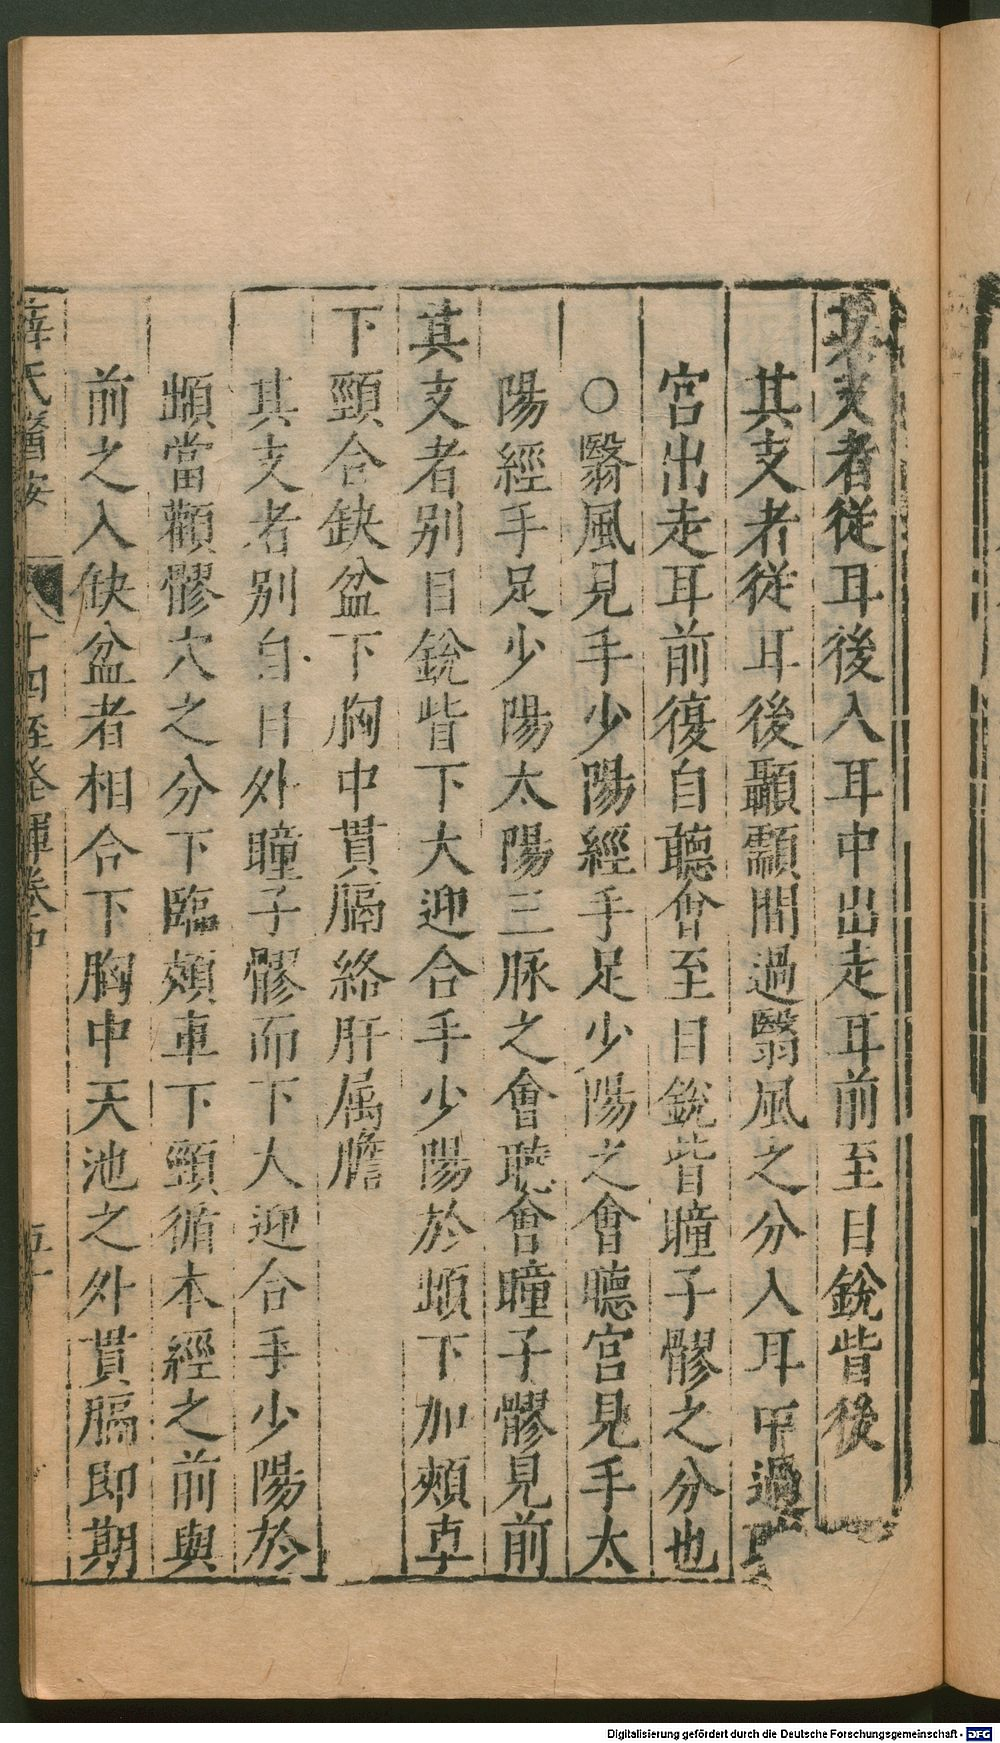 其支者從耳後入耳中出走耳前至目銳眥後
其支者從耳後顳顬間過翳風之分入耳中過
宮出走耳前復自聽會至目銳眥瞳子髎之分也
○翳風見手少陽經手足少陽之會聽宮見手太
陽經手足少陽太陽三脉之會聽會瞳子髎見前
其支者別目銳眥下大迎合手少陽於䪼下加頰車
下頸合缺盆下胸中貫膈絡肝属膽
其支者別自目外瞳子髎而下大迎合手少陽於
䪼當顴髎穴之分下臨頰車下頸循本經之前與
前之入缺盆者相合下胸中天池之外貫膈即期
薛氏醫按 十四經發揮卷中
Digitalisierung gefördert durch die Deutsche Forschungsgemeinschaft - DFG